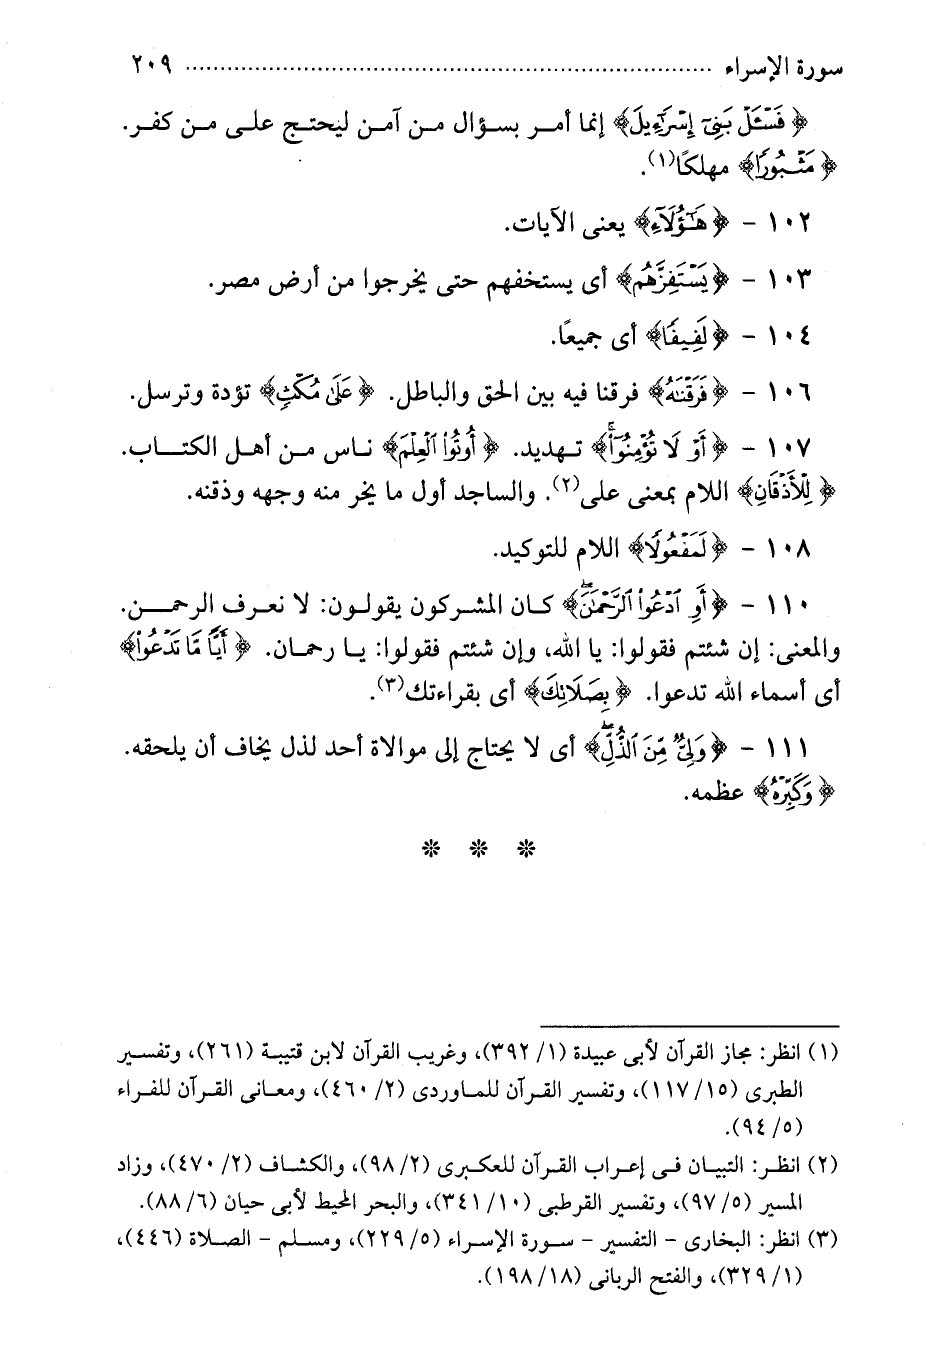 سورة الإسراء ........................................................................ ٢٠٩
﴿فَسْـَٔلْ بَنِىٓ إِسْرَٰٓءِيلَ﴾ إنما أمر بسؤال من آمن ليحتج على من كفر.
﴿مَثْبُورًا﴾ مهلكًا(١).
١٠٢ - ﴿هَـٰٓؤُلَآءِ﴾ يعنى الآيات.
١٠٣ - ﴿يَسْتَفِزَّهُم﴾ أى يستخفهم حتى يخرجوا من أرض مصر.
١٠٤ - ﴿لَفِيفًا﴾ أى جميعًا.
١٠٦ - ﴿فَرَقْنَـٰهُ﴾ فرقنا فيه بين الحق والباطل. ﴿عَلَىٰ مُكْثٍ﴾ تؤدة وترسل.
١٠٧ - ﴿أَوْ لَا تُؤْمِنُوٓا۟ۚ﴾ تهديد. ﴿أُوتُوا۟ ٱلْعِلْمَ﴾ ناس من أهل الكتاب.
﴿لِلْأَذْقَانِ﴾ اللام بمعنى على(٢). والساجد أول ما يخر منه وجهه وذقنه.
١٠٨ - ﴿لَمَفْعُولًا﴾ اللام للتوكيد.
١١٠ - ﴿أَوِ ٱدْعُوا۟ ٱلرَّحْمَـٰنَۖ﴾ كان المشركون يقولون: لا نعرف الرحمن.
والمعنى: إن شئتم فقولوا: يا الله، وإن شئتم فقولوا: يا رحمان. ﴿أَيًّا مَّا تَدْعُوا۟﴾
أى أسماء الله تدعوا. ﴿بِصَلَاتِكَ﴾ أى بقراءتك(٣).
١١١ - ﴿وَلِىٌّ مِّنَ ٱلذُّلِّۖ﴾ أى لا يحتاج إلى موالاة أحد لذل يخاف أن يلحقه.
﴿وَكَبِّرْهُ﴾ عظمه.
* * *
(١) انظر: مجاز القرآن لأبى عبيدة (١/ ٣٩٢)، وغريب القرآن لابن قتيبة (٢٦١)، وتفسير
الطبرى (١٥/ ١١٧)، وتفسير القرآن للماوردى (٢/ ٤٦٠)، ومعانى القرآن للفراء
(٥/ ٩٤).
(٢) انظر: التبيان فى إعراب القرآن للعكبرى (٢/ ٩٨)، والكشاف (٢/ ٤٧٠)، وزاد
المسير (٥/ ٩٧)، وتفسير القرطبى (١٠/ ٣٤١)، والبحر المحيط لأبى حيان (٦/ ٨٨).
(٣) انظر: البخارى - التفسير - سورة الإسراء (٥/ ٢٢٩)، ومسلم - الصلاة (٤٤٦)،
(١/ ٣٢٩)، والفتح الربانى (١٨/ ١٩٨).